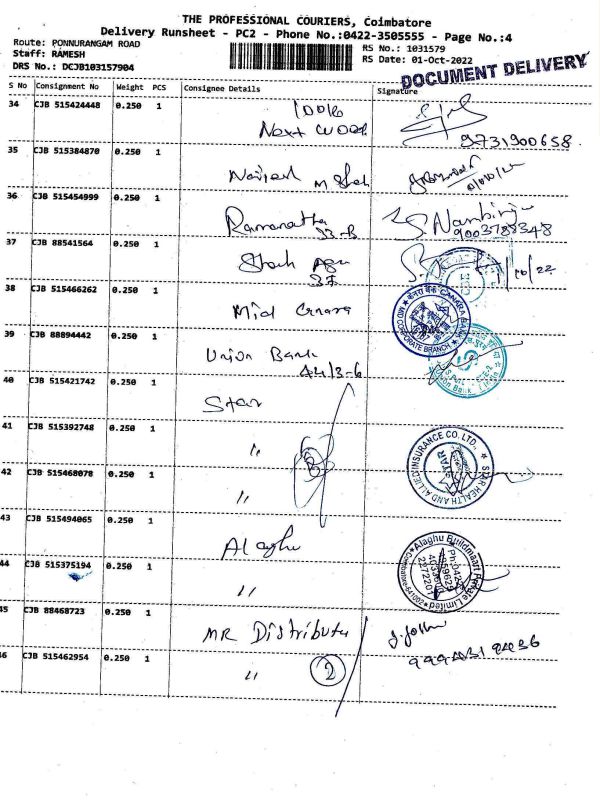 THE PROFESSIONAL COURIERS, Coimbatore
Delivery Runsheet - PC2 - Phone No.:0422-3505555 - Page No.:4
Route: PONNURANGAM ROAD
RS No.: 1031579
Staff: RAMESH
RS Date: 01-Oct-2022
DRS No.: DCJB103157904
DOCUMENT DELIVERY
S No Consignment No Weight PCS Consignee Details Signature
34 CJB 515424448 0.250 1
Next
9731900658
35 CJB 515384870 0.250 1
M Shah
36 CJB 515454999 0.250 1
Ramanatha
33-B
S. Nambiraju
9003788348
37 CJB 88541564 0.250 1
10/22
38 CJB 515466262 0.250 1
Mid
CANARA BANK
39 CJB 88894442 0.250 1
Union Bank
44/3-6
40 CJB 515421742 0.250 1
Star
41 CJB 515392748 0.250 1
"
STAR HEALTH AND ALLIED INSURANCE CO. LTD.
42 CJB 515468078 0.250 1
"
43 CJB 515494065 0.250 1
Alaghu
Alaghu Buildmaart Private Limited
44 CJB 515375194 0.250 1
"
45 CJB 88468723 0.250 1
MR Distributu
46 CJB 515462954 0.250 1
" 2